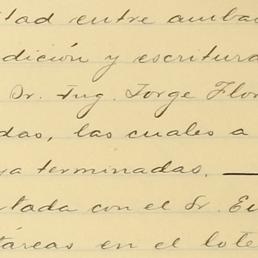 tad entre ambas
dición y escritura
Dr. Ing. Jorge Flor
das, las cuales a
ya terminadas.
tada con el Sr. Eu
táreas en el lote